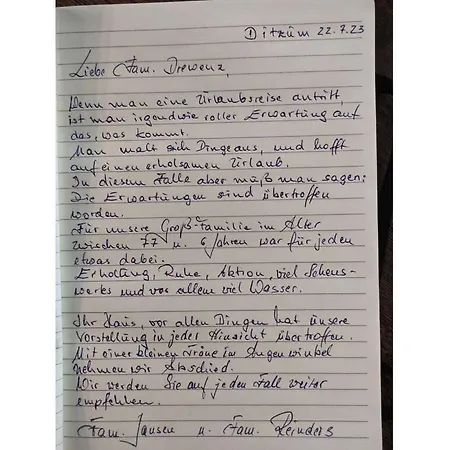 Ditzum 22.7.23
Liebe Fam. Drewenz,
Wenn man eine Urlaubsreise antritt,
ist man irgendwie voller Erwartung auf
das, was kommt.
Man malt sich Dinge aus, und hofft
auf einen erholsamen Urlaub.
In diesem Falle aber muß man sagen:
Die Erwartungen sind übertroffen
worden.
Für unsere Groß-familie im Alter
zwischen 77 u. 6 Jahren war für jeden
etwas dabei.
Erholung, Ruhe, Aktion, viel Sehens-
wertes und vor allem viel Wasser.
Ihr Haus, vor allen Dingen hat unsere
Vorstellung in jeder Hinsicht übertroffen.
Mit einer kleinen Träne im Augenwinkel
nehmen wir Abschied.
Wir werden Sie auf jeden Fall weiter
empfehlen.
Fam. Jansen u. Fam. Reinders